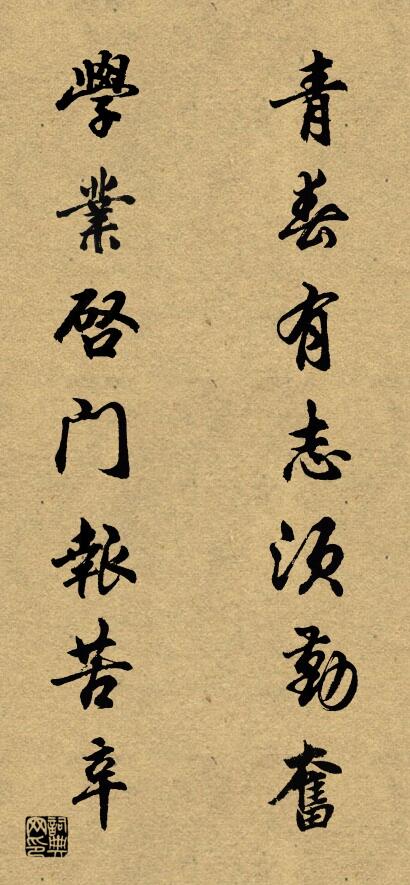 青春有志須勤奮
學業啓門報苦辛
詞典網印